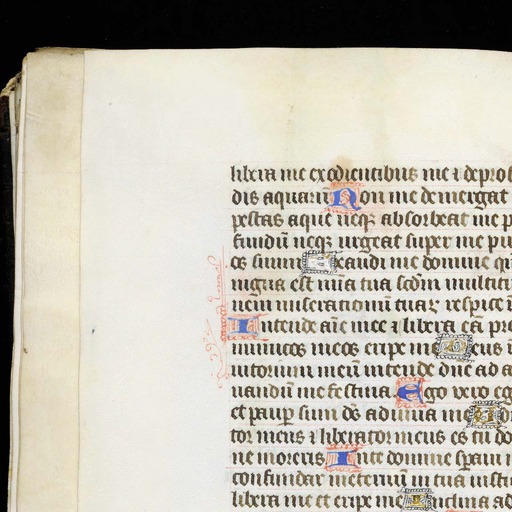 libera me ex odientibus me ⁊ de prof
dis aquarū Non me demergat
pestas aque neqꝫ absorbeat me p
fundū neqꝫ urgeat super me pu
os suum Exaudi me domine qm̄
nigna est mīa tua scdm̄ multitu
nem miserationū tuaꝝ respice ī
Intende aīe mee ⁊ libera eā pro
inimicos meos eripe m Deus ī
iutorium meū intende dn̄e ad a
uandū me festina Ego vero eg
et paup sum ds̄ adiuua me Adi
tor meus ⁊ liberator meus es tu do
ne moreris In te domine spaui n
confundar in eternū in tua iusti
libera me et eripe me Inclina ad